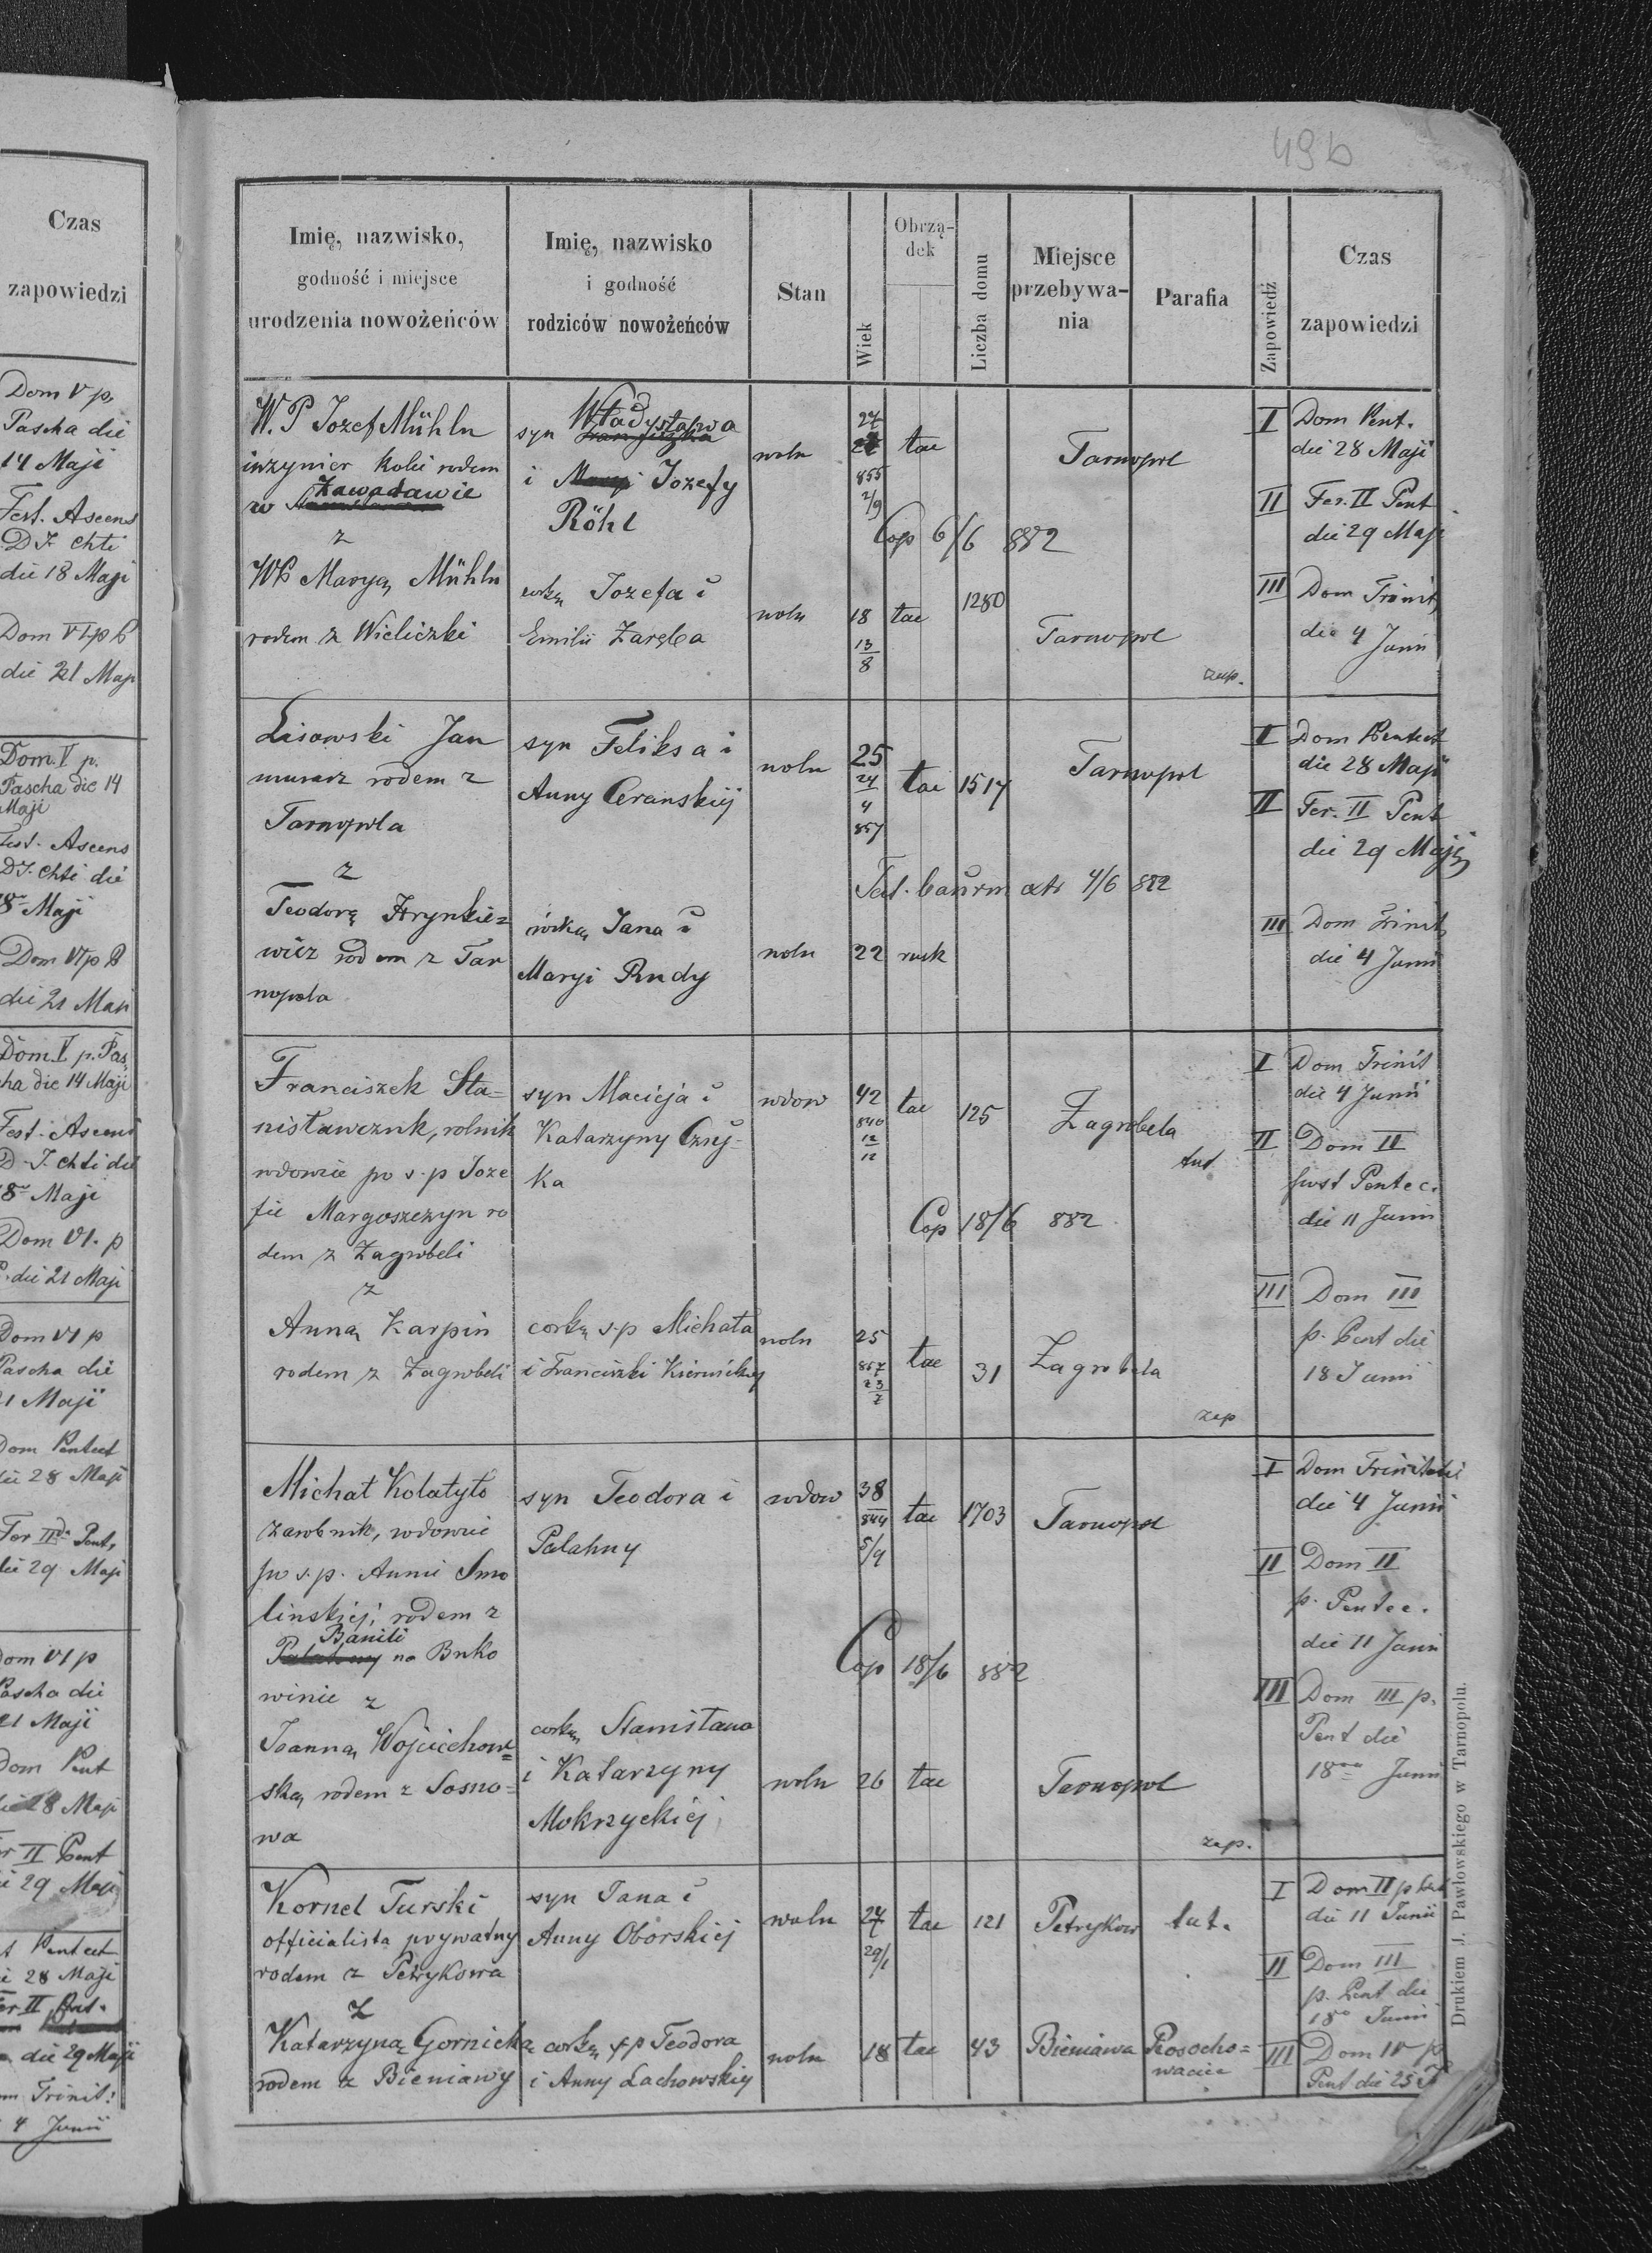 49b
Czas
zapowiedzi
Dom V p.
Pascha die
14 Maji
Fest. Ascens
D J. Chti
die 18 Maji
Dom VI p
die 21 Maji
Dom. V p.
Pascha die 14
Maji
Fest. Ascens
D J. Chti die
18 Maji
Dom VI p
die 21 Maji
Dom. V p. Pas
cha die 14 Maji
Fest. Ascens
D. J. Chti die
18 Maji
Dom VI. p
die 21 Maji
Dom VI p
Pascha die
21 Maji
Dom Pentect
die 28 Maji
Fer II Pent.
die 29 Maji
Dom VI p
Pascha die
21 Maji
Dom Pent
die 28 Maji
II Pent
29 Maji
Pentect
28 Maji
II Pent.
die 29 Maji
Trinit.
4 Junii
Imię, nazwisko,
godność i miejsce
urodzenia nowożeńców
Imię, nazwisko
i godność
rodziców nowożeńców
Stan
Wiek
Obrzą-
dek
Liczba domu
Miejsce
przebywa-
nia
Parafia
Zapowiedź
Czas
zapowiedzi
W. P Jozef Mühln
inzynier kolei rodem
w Zawadawie
z
WP Maryą Mühln
rodem z Wieliczki
syn Władysława
i Jozefy
Röhl
corką Jozefa i
Emilii Zaręba
woln
27
855
2/9
tac
Tarnopol
Cop 6/6 882
woln 18 tac 1280
13
8
Tarnopol
zap.
I Dom Pent.
die 28 Maji
II Fer. II Pent
die 29 Maji
III Dom Trinit
die 4 Junii
Lisowski Jan
murarz rodem z
Tarnopola
z
Teodorę Hrynkie=
wicz rodem z Tar
nopola
syn Feliksa i
Anny Ceranskiej
córką Jana i
Maryi Rudy
woln 25 tac 1517 Tarnopol
24
4
857
4/6 882
woln 22 rusk
I Dom Pentect
die 28 Maji
II Fer. II Pent
die 29 Maji
III Dom Trinit
die 4 Junii
Franciszek Sta=
nisławczuk, rolnik
wdowiec po s.p Joze
fie Margoszczyn ro
dem z Zagrobeli
z
Anną Karpin
rodem z Zagrobeli
syn Macieja i
Katarzyny Czuj-
ka
corką s.p Michała
i Franciszki
wdow 42 tac 125 Zagrobela
840
12
12
tut
Cop 18/6 882
woln 25 tac 31 Zagrobela
857
23
7
zap
I Dom Trinit
die 4 Junii
II Dom II
post Pentec.
die 11 Junii
III Dom III
p. Pent die
18 Junii
Michał Kolatyło
zarobnik, wdowiec
po s.p. Annie Smo
linskiej, rodem z
Banili na Buko
winie z
Joanną Wojciechow=
ską rodem z Sosno=
wa
syn Teodora i
Palahny
corką Stanisława
i Katarzyny
Mokrzyckiej
wdow 38 tac 1703 Tarnopol
844
5/9
Cop 18/6 882
woln 26 tac Tarnopol
zap.
I Dom Trinitatis
die 4 Junii
II Dom II
p. Pentec.
die 11 Junii
III Dom III p.
Pent die
18 Junii
Kornel Turski
officialista prywatny
rodem z Petrykowa
z
Katarzyną Gornicką
rodem z Bieniawy
syn Jana i
Anny Oborskiej
corką s.p Teodora
i Anny Lachowskiej
woln 27 tac 121 Petrykow tut.
29/1
woln 18 tac 43 Bieniawa Rosocho=
waciec
I Dom II p Pent
die 11 Junii
II Dom III
p. Pent die
18 Junii
III Dom IV p
Pent die 25
Drukiem J. Pawłowskiego w Tarnopolu.